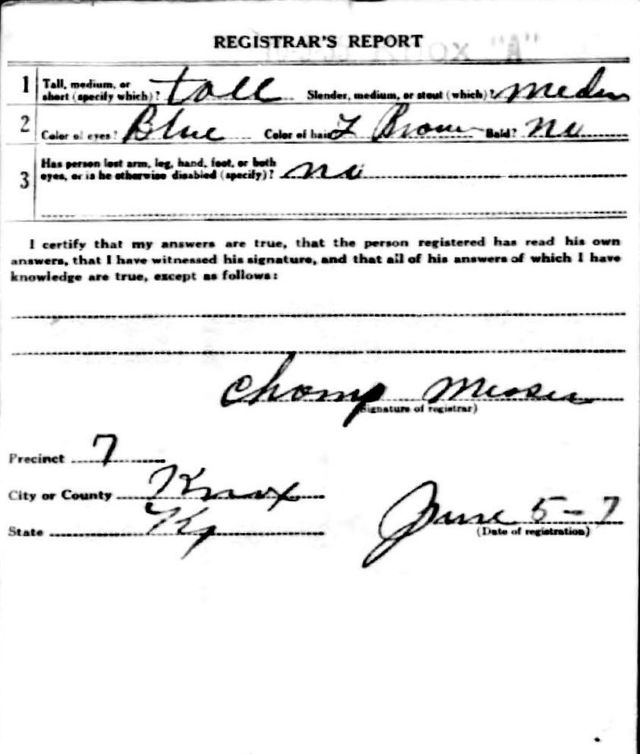 REGISTRAR'S REPORT
1 Tall, medium, or short (specify which)? tall Slender, medium, or stout (which)? medium
2 Color of eyes? Blue Color of hair? L Brown Bald? no
3 Has person lost arm, leg, hand, foot, or both eyes, or is he otherwise disabled (specify)? no
I certify that my answers are true, that the person registered has read his own
answers, that I have witnessed his signature, and that all of his answers of which I have
knowledge are true, except as follows:
Champ Messer
(Signature of registrar)
Precinct 7
City or County Knox
State Ky
June 5-7
(Date of registration)